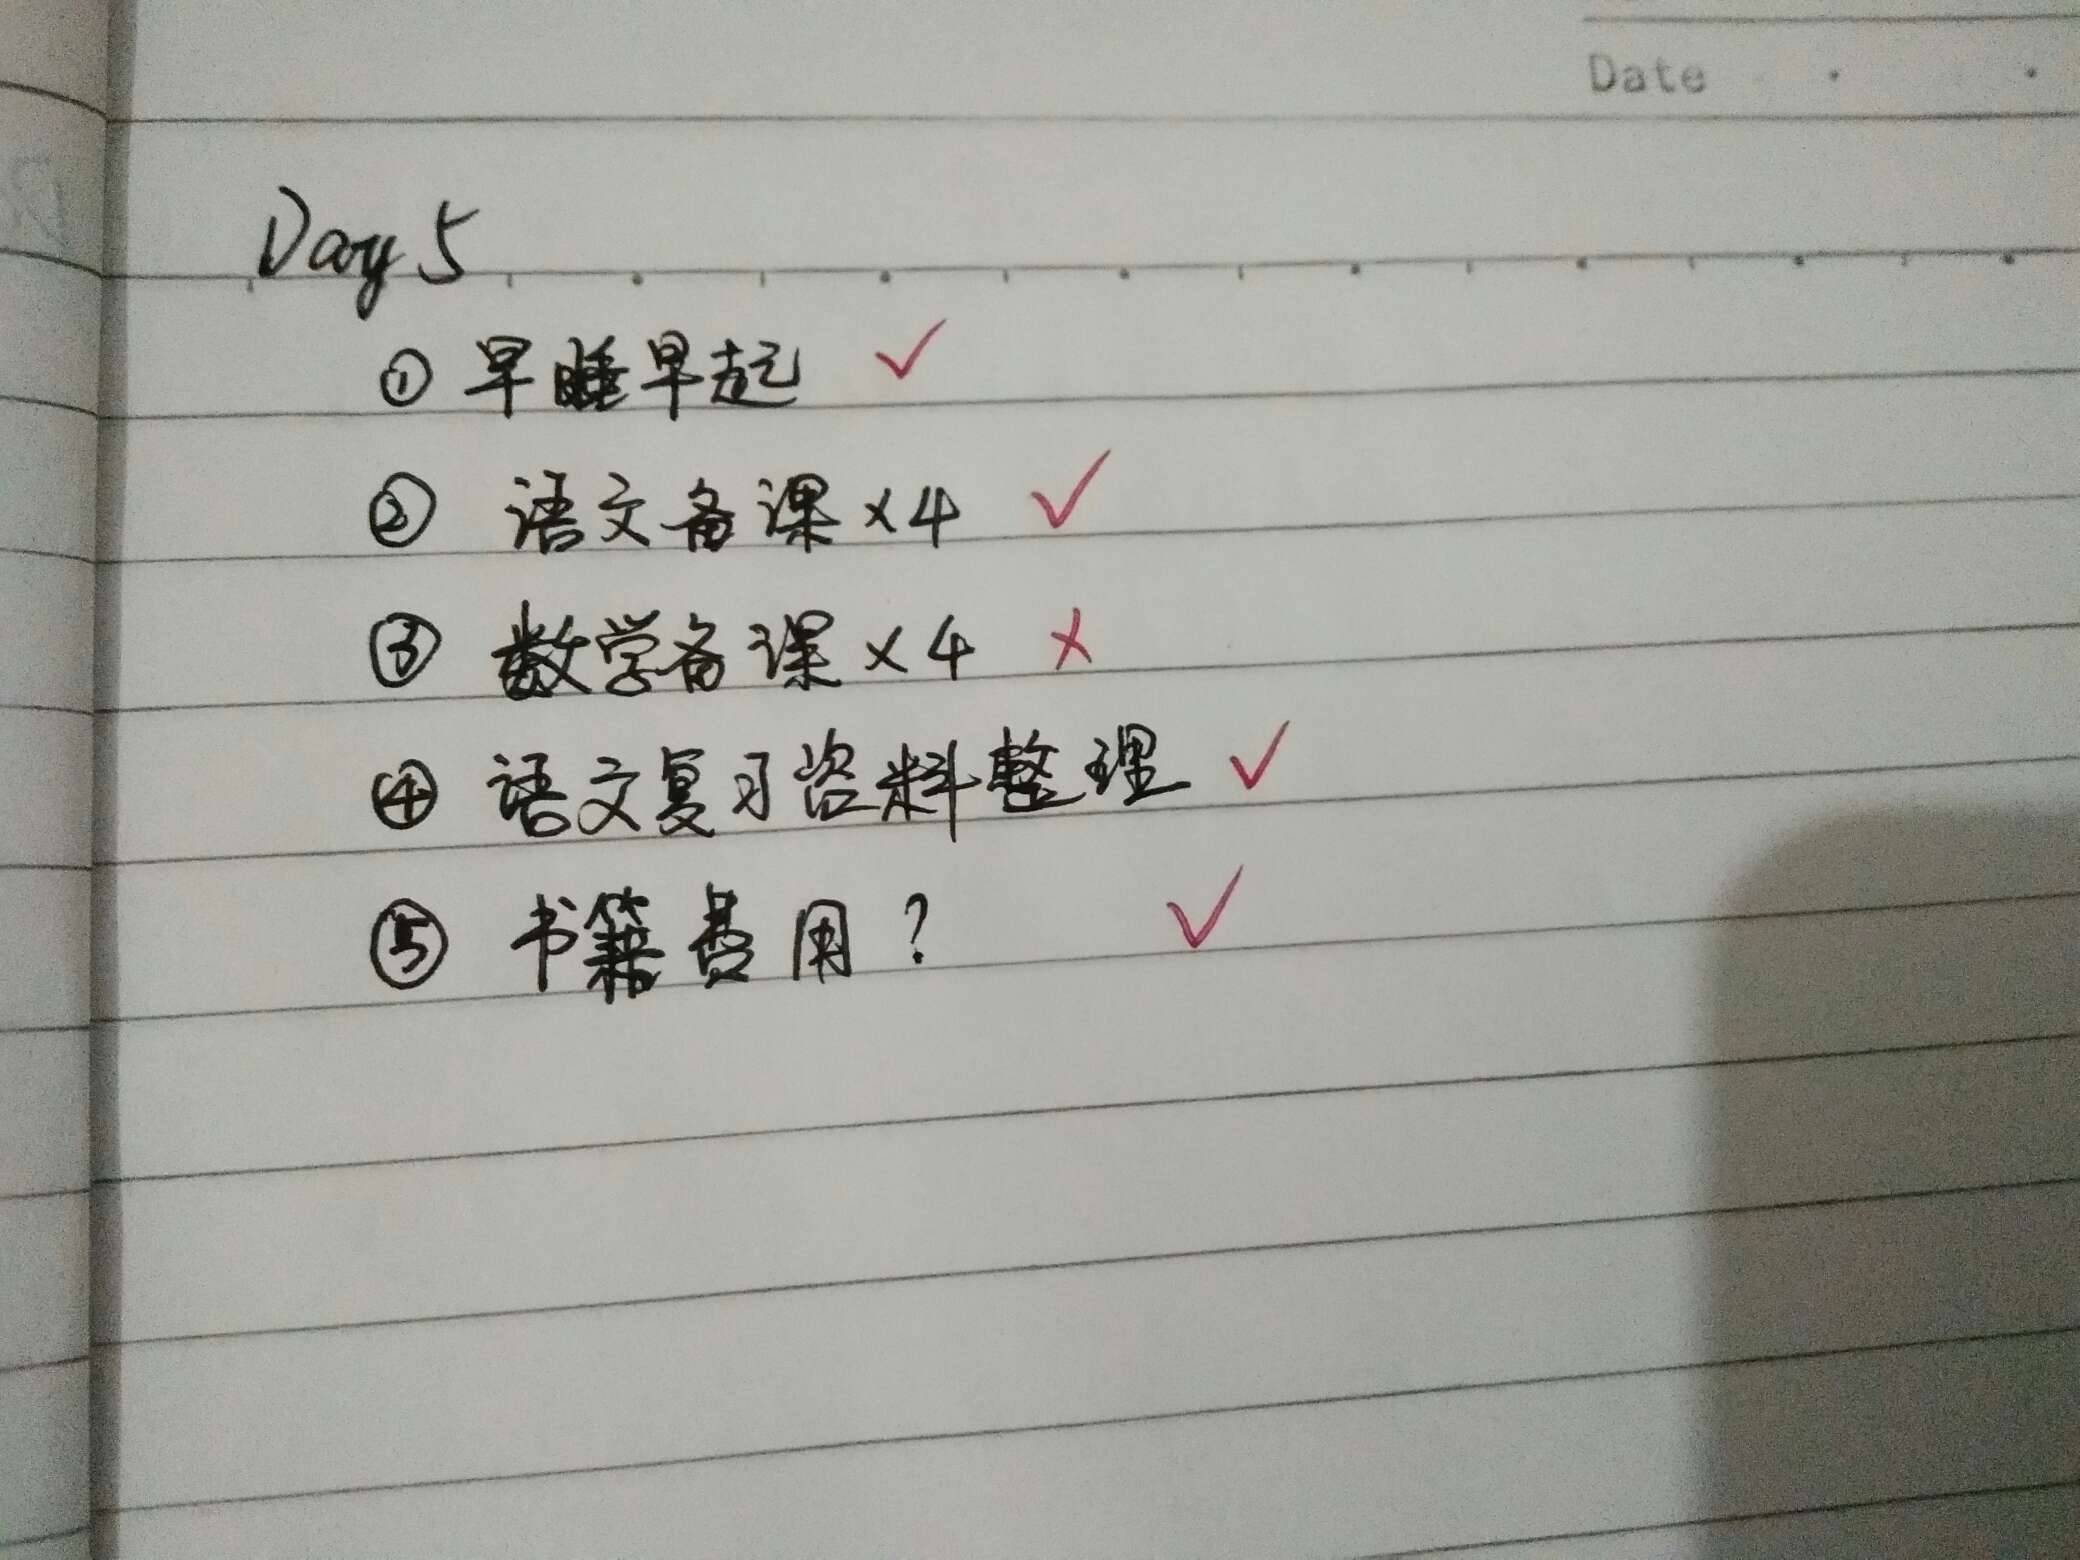 Date
Day 5
① 早睡早起 ✓
② 语文备课×4 ✓
③ 数学备课×4 ×
④ 语文复习资料整理 ✓
⑤ 书籍费用? ✓